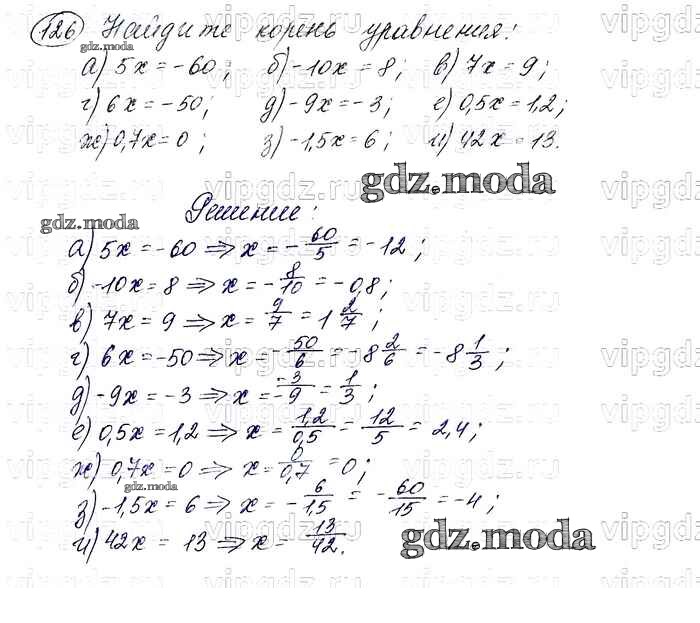 126 Найдите корень уравнения:
а) 5x = -60; б) -10x = 8; в) 7x = 9;
г) 6x = -50; д) -9x = -3; е) 0,5x = 1,2;
ж) 0,7x = 0; з) -1,5x = 6; и) 42x = 13.
Решение:
а) 5x = -60 ⇒ x = -60/5 = -12;
б) -10x = 8 ⇒ x = -8/10 = -0,8;
в) 7x = 9 ⇒ x = 9/7 = 1 2/7;
г) 6x = -50 ⇒ x = -50/6 = -8 2/6 = -8 1/3;
д) -9x = -3 ⇒ x = -3/-9 = 1/3;
е) 0,5x = 1,2 ⇒ x = 1,2/0,5 = 12/5 = 2,4;
ж) 0,7x = 0 ⇒ x = 0/0,7 = 0;
з) -1,5x = 6 ⇒ x = -6/1,5 = -60/15 = -4;
и) 42x = 13 ⇒ x = 13/42.
gdz.moda
gdz.moda
gdz.moda
gdz.moda
gdz.moda
vipgdz.ru